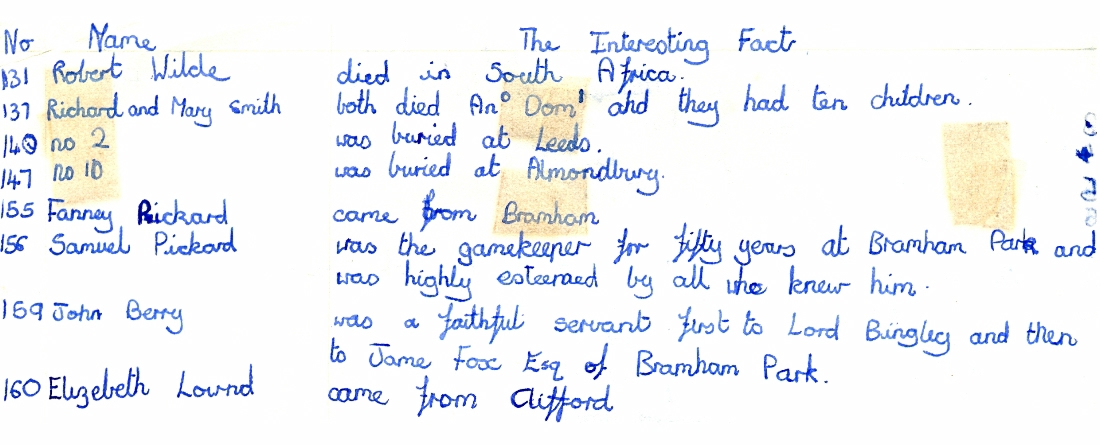 No Name The Interesting Fact
131 Robert Wilde died in South Africa.
137 Richard and Mary Smith both died Anº Dom' and they had ten children.
140 no 2 was buried at Leeds.
147 no 10 was buried at Almondbury.
155 Fanney Rickard came from Bramham
156 Samuel Pickard was the gamekeeper for fifty years at Bramham Park and
was highly esteemed by all who knew him.
159 John Berry was a faithful servant first to Lord Bingley and then
to Jame Fox Esq of Bramham Park.
160 Elizebeth Lownd came from Clifford